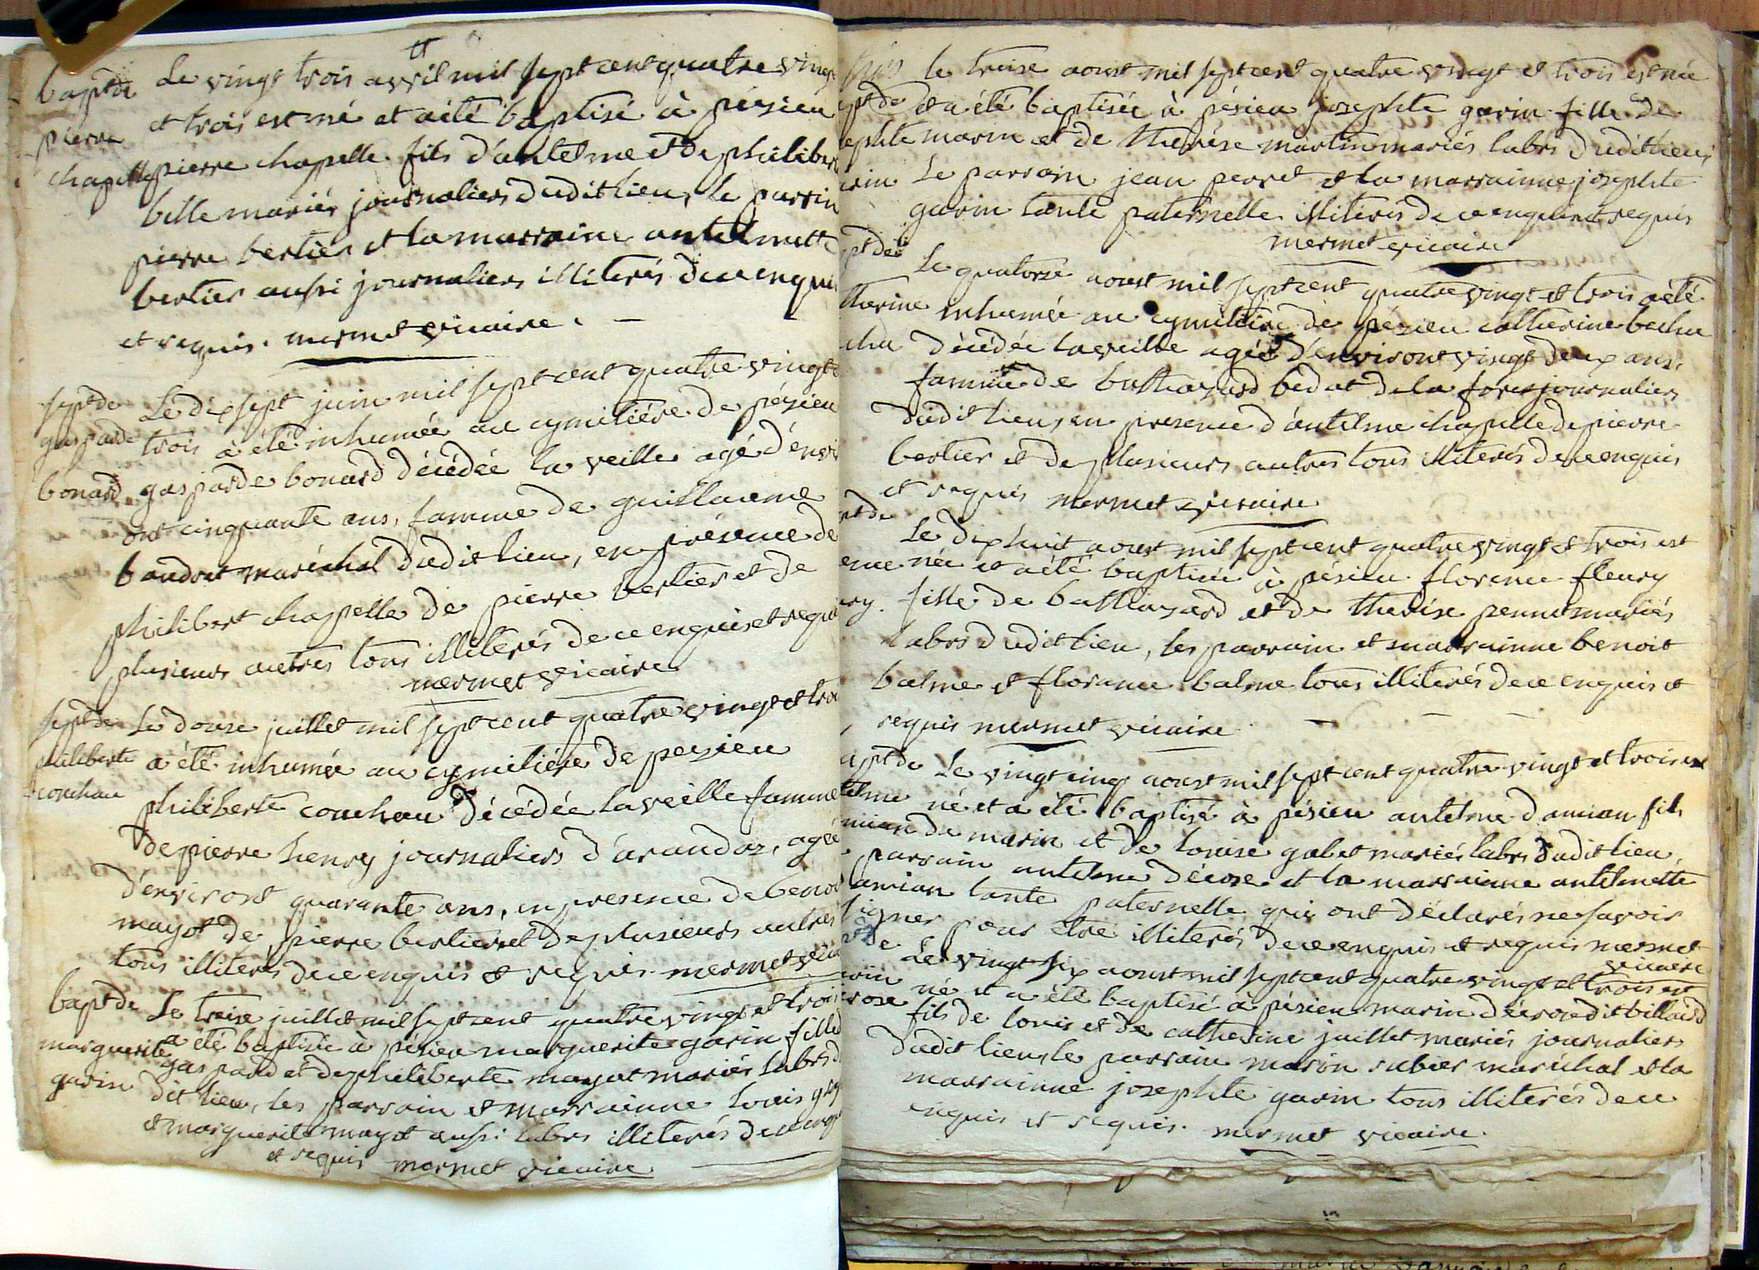 baptde
pierre
chapelle
Le vingt trois avril mil sept cent quatre vingt
et trois est né et a été baptisé à pézieu
pierre chapelle fils d'antelme et de philiber
bille mariés journaliers dudit lieu, le parrin
pierre bertier et la marraine antelmette
bertier aussi journaliers illiterés de ce enquis
et requis. mermet vicaire.
septde
gasparde
bonard
Le dix sept juin mil sept cent quatre vingt
trois a été inhumée au cymitiére de pézieu
gasparde bonard décédée la veille agé d'envir
ont cinquante ans, famme de guillaume
baudrat maréchal dudit lieu, en présence de
philibert chapelle de pierre bertier et de
plusieurs autres tous illiterés de ce enquis et requis
mermet vicaire
septde
philiberte
couchou
Le douse juillet mil sept cent quatre vingt et troi
a été inhumée au cymitiére de pezieu
philiberte couchou décédée la veille famme
de pierre henry journaliers d'arandas, agée
d'environt quarante ans, en presence de benoi
mayot de pierre bertier et de plusieurs autres
tous illiterés de ce enquis et requis. mermet vicai
baptde
marguerite
garin
Le treise juillet mil sept cent quatre vingt et trois
a été baptisée a pézieu marguerite garin fille d
gaspard et de philiberte mayot mariés labrs d
dit lieu, les parrain et marrainne louis
et marguerite mayot aussi labrs illiterés de ce enqu
et requis mermet vicaire
ptde
ephte
arin
Le treise aoust mil sept cent quatre vingt et trois est née
et a été baptisée à pézieu josephte garin fille de
marin et de therése martin mariés labrs dudit lieu
Le parrain jean perret et la marrainne josephte
garin tante paternelle illiterés de ce enquis et requis
mermet vicaire
ptde
therine
chu
Le quatorse aoust mil sept cent quatre vingt et trois a été
inhumée au cymitiére de pézieu catherine bechu
décédée la veille agée d'environt vingt deux ans,
famme de balthazard bedat de la forest journalier
dudit lieu, en presence d'antelme chapelle de pierre
bertier et de plusieurs autres tous illiterés de ce enquis
et requis mermet vicaire
ptde
ence
ury.
Le dix huit aoust mil sept cent quatre vingt et trois est
née et a été baptisée à pézieu florence fleury
fille de balthazard et de therése perret mariés
labrs dudit lieu, les parrain et marrainne benoit
balme et florence balme tous illiterés de ce enquis et
requis mermet vicaire
aptde
telme
mian
Le vingt cinq aoust mil sept cent quatre vingt et trois est
né et a été baptisé à pézieu antelme damian fils
de marin et de louise gabet mariés labrs dudit lieu,
parrain antelme derose et la marrainne antelmette
damian tante paternelle qui ont déclarés ne savoir
signer pour etre illiterés de ce enquis et requis mermet
vicaire
de
rin
rose
Le vingt six aoust mil sept cent quatre vingt et trois est
né et a été baptisé à pézieu marin derose dit billard
fils de louis et de catherine juillet mariés journaliers
dudit lieu, le parrain marin rubier maréchal et la
marrainne josephte garin tous illiterés de ce
enquis et requis. mermet vicaire.